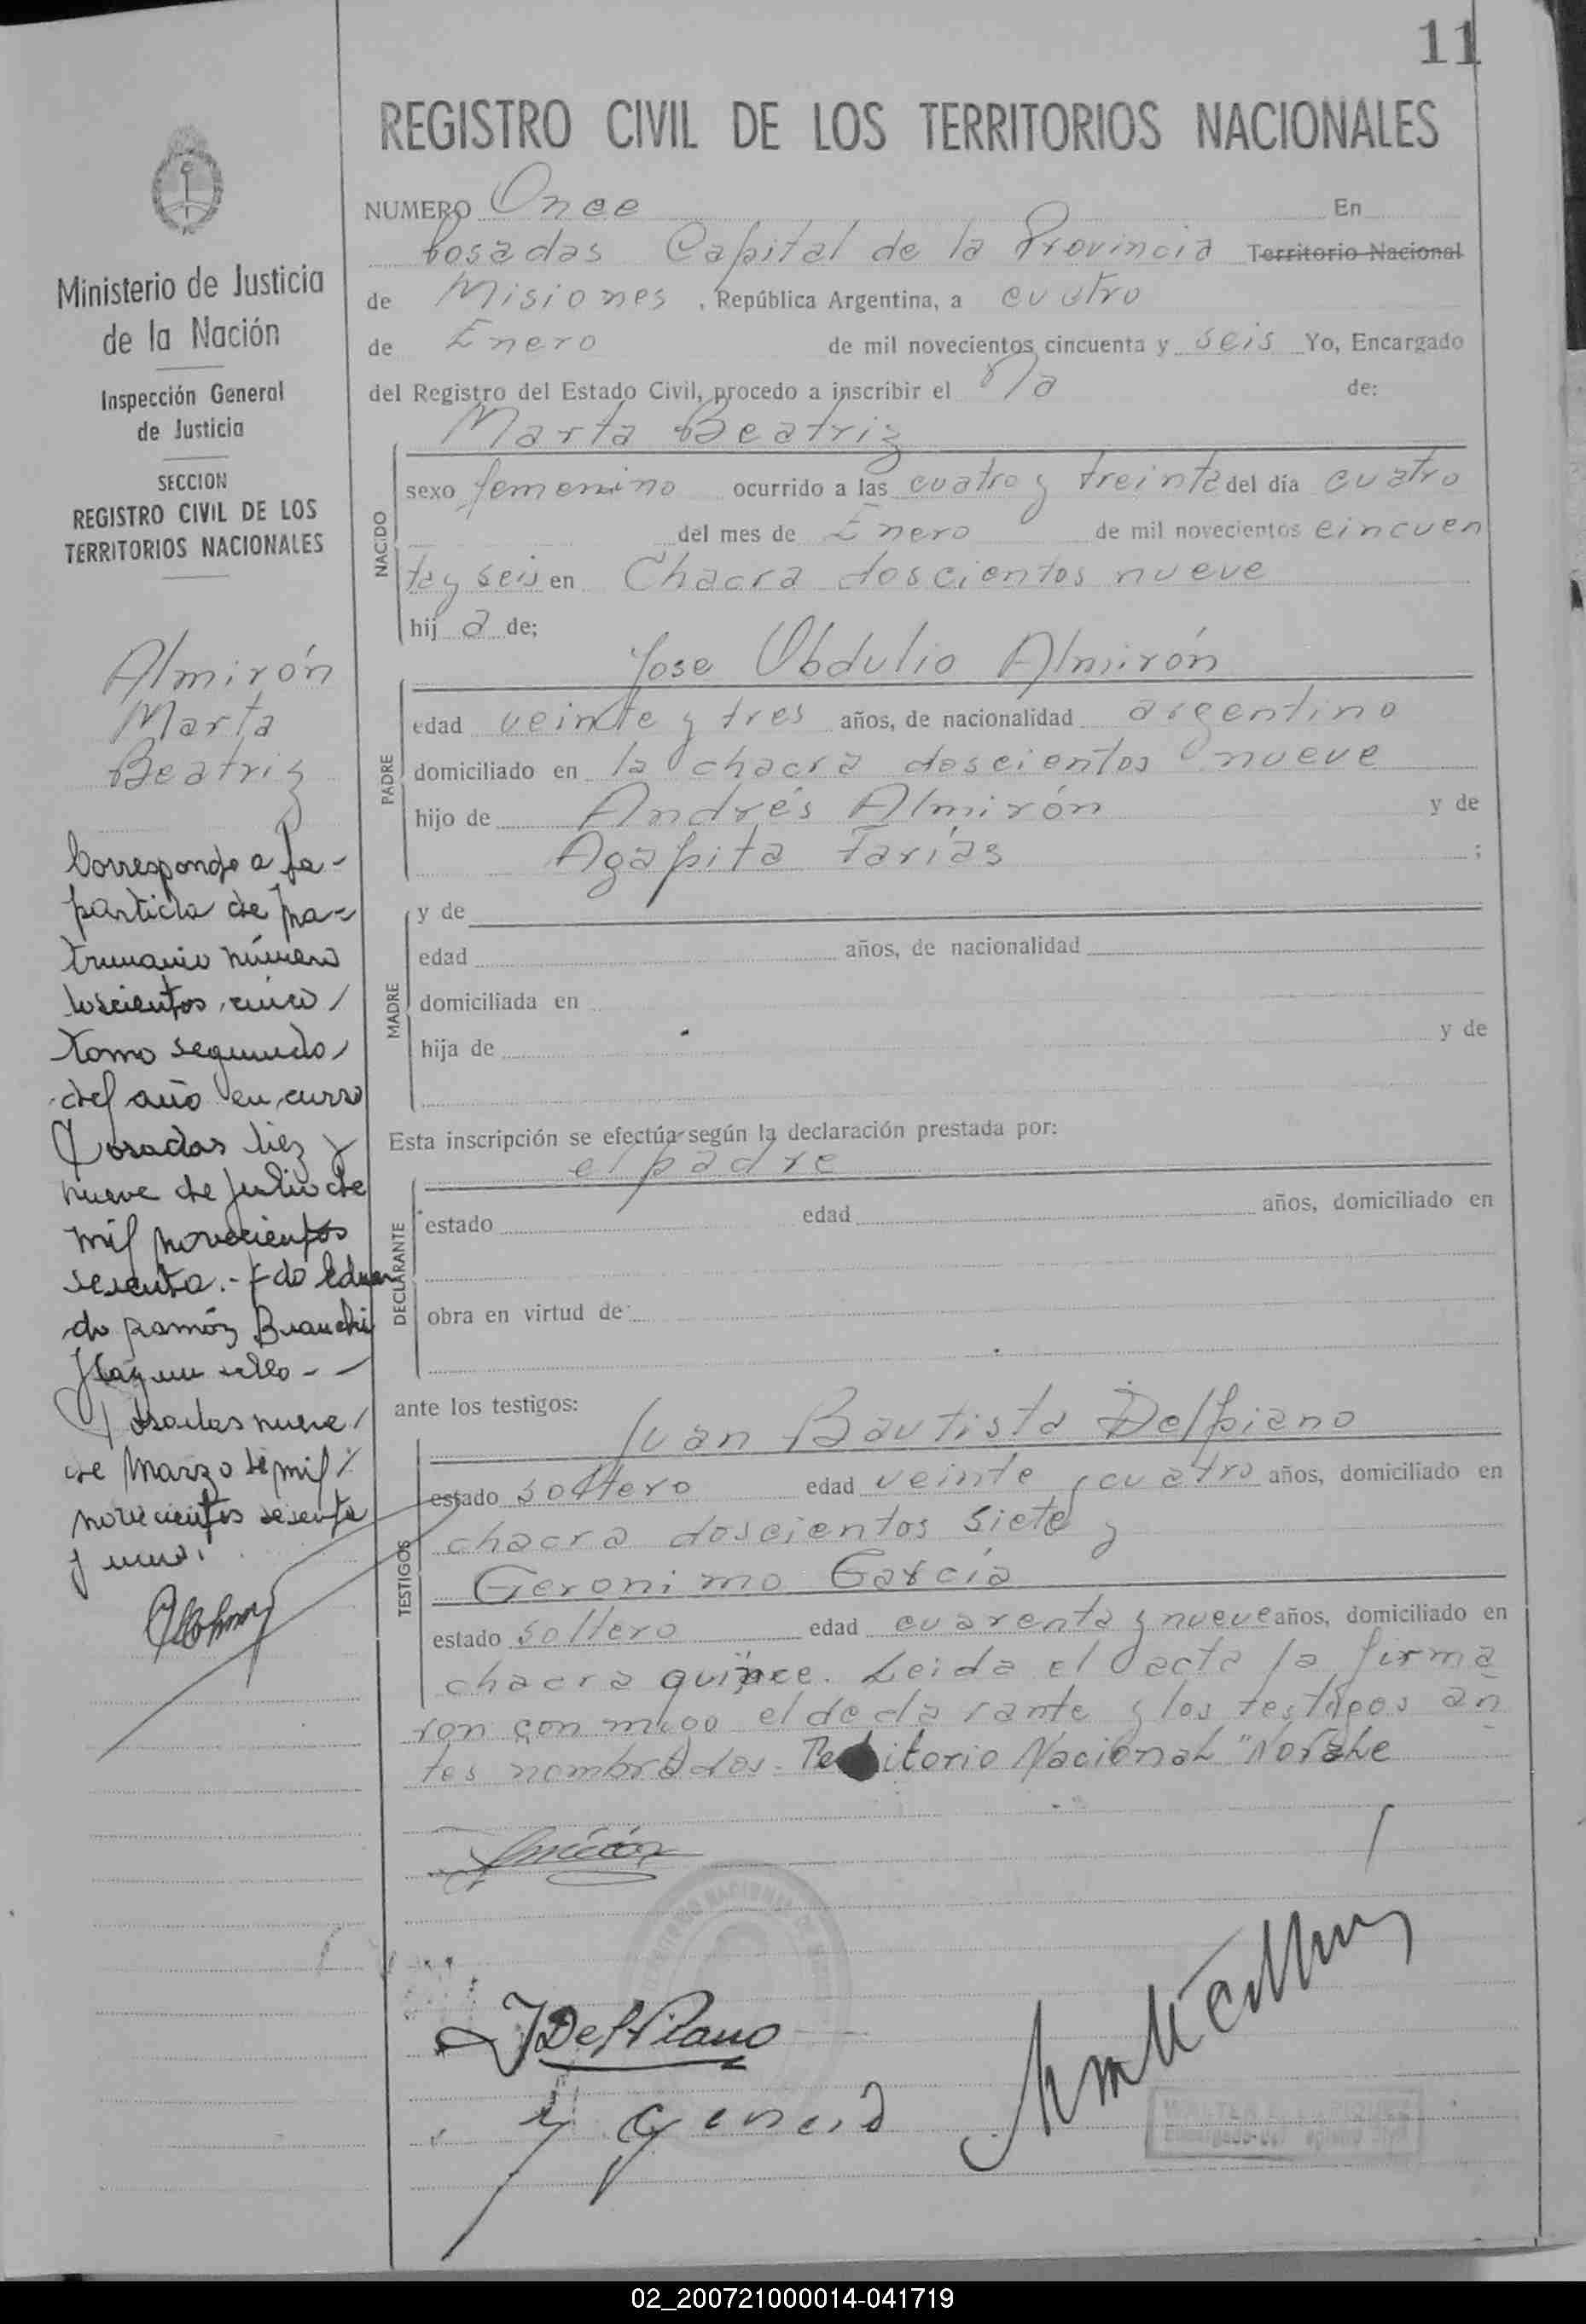 11
REGISTRO CIVIL DE LOS TERRITORIOS NACIONALES
NUMERO Once En
Posadas Capital de la Provincia Territorio Nacional
de Misiones, República Argentina, a cuatro
de Enero de mil novecientos cincuenta y seis Yo, Encargado
del Registro del Estado Civil, procedo a inscribir el de:
Marta Beatriz
NACIDO
sexo femenino ocurrido a las cuatro y treinta del día cuatro
del mes de Enero de mil novecientos cincuen
ta y seis en Chacra doscientos nueve
hij a de;
Jose Obdulio Almirón
PADRE
edad veinte y tres años, de nacionalidad argentino
domiciliado en la chacra doscientos nueve
hijo de Andrés Almirón y de
Agapita Farías ;
MADRE
y de
edad años, de nacionalidad
domiciliada en
hija de y de
Esta inscripción se efectúa según la declaración prestada por:
el padre
DECLARANTE
estado edad años, domiciliado en
obra en virtud de
ante los testigos:
Juan Bautista Delpiano
TESTIGOS
estado soltero edad veinte y cuatro años, domiciliado en
chacra doscientos siete y
Geronimo García
estado soltero edad cuarenta y nueve años, domiciliado en
chacra quince. Leida el acta la firma
ron con migo el declarante y los testigos an
tes nombrados. Territorio Nacional "No Vale
JDelPiano
Ministerio de Justicia
de la Nación
Inspección General
de Justicia
SECCION
REGISTRO CIVIL DE LOS
TERRITORIOS NACIONALES
Almirón
Marta
Beatriz
Corresponde a la
partida de ma-
trimonio número
doscientos cinco
tomo segundo
del año en curso
Posadas diez y
nueve de Julio de
mil novecientos
sesenta.- Fdo Eduar
do Ramón Bianchi
Hay un sello - -
Posadas nueve
de Marzo de mil
novecientos sesenta
y uno.
02_200721000014-041719